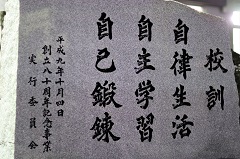 校訓
自律生活
自主学習
自己鍛錬
平成九年十月四日
創立八十周年記念事業
実行委員会